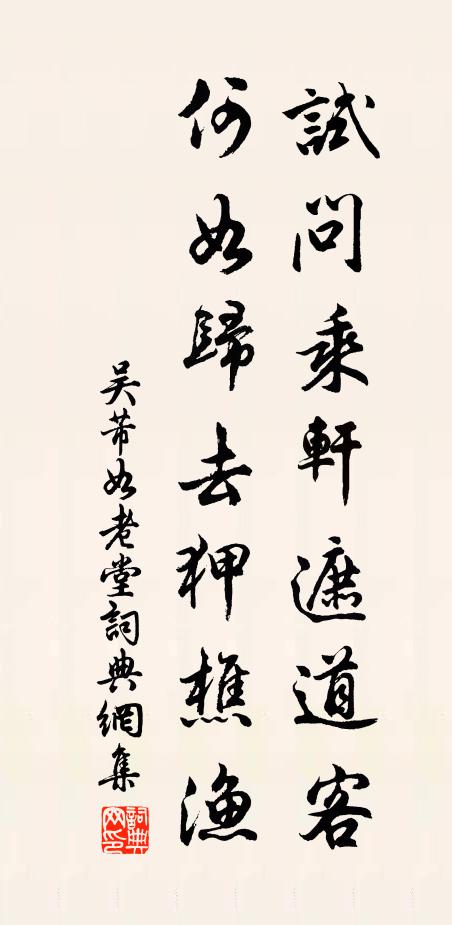 試問乘軒遮道客
何如歸去狎樵漁
吴芾如老堂詞典網集
詞典網印